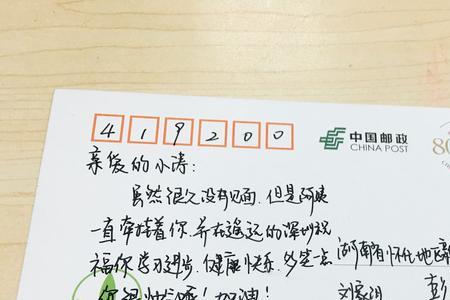 419200
中国邮政
CHINA POST
80
亲爱的小涛:
虽然很久没有见面,但是阿姨
一直牵挂着你,并在遥远的深圳祝
福你学习进步、健康快乐,多笑一点
湖南省怀化地区